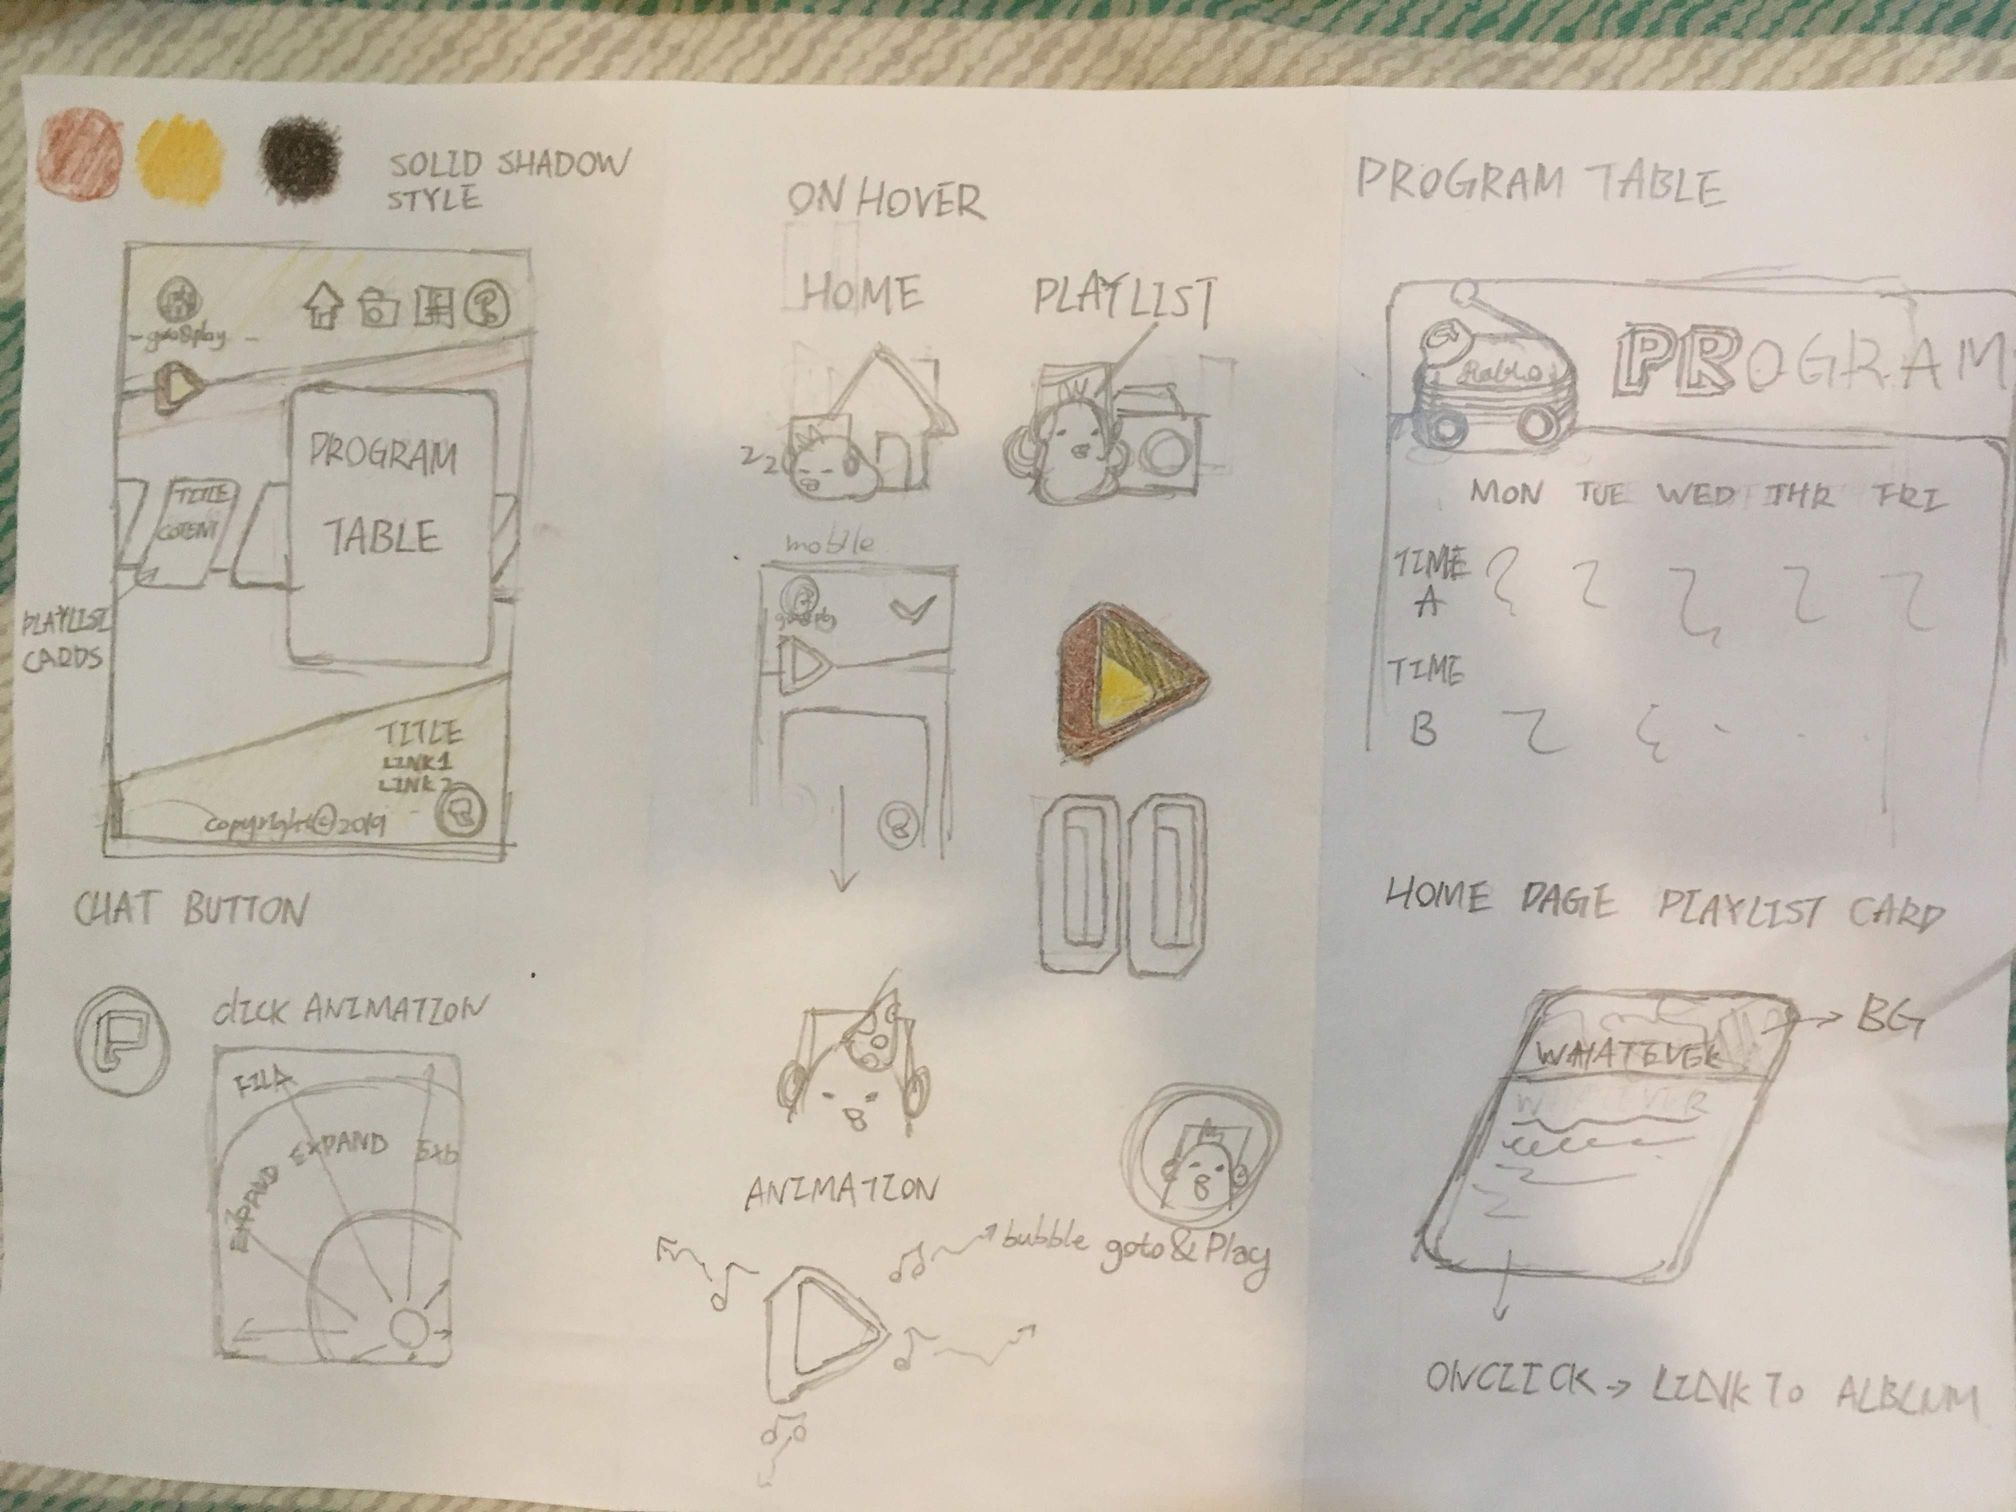 SOLID SHADOW
STYLE
-goto&play-
PROGRAM
TABLE
TITLE
COTENT
PLAYLIST
CARDS
TITLE
LINK1
LINK2
copyright©2019
CHAT BUTTON
CLICK ANIMATION
EXPAND
EXPAND
ON HOVER
HOME
PLAYLIST
zz
mobile
goto&play
ANIMATION
bubble
goto&Play
PROGRAM TABLE
PROGRAM
MON TUE WED THR FRI
TIME
A
TIME
B
HOME PAGE PLAYLIST CARD
WHATEVER
BG
ONCLICK → LINK TO ALBLUM